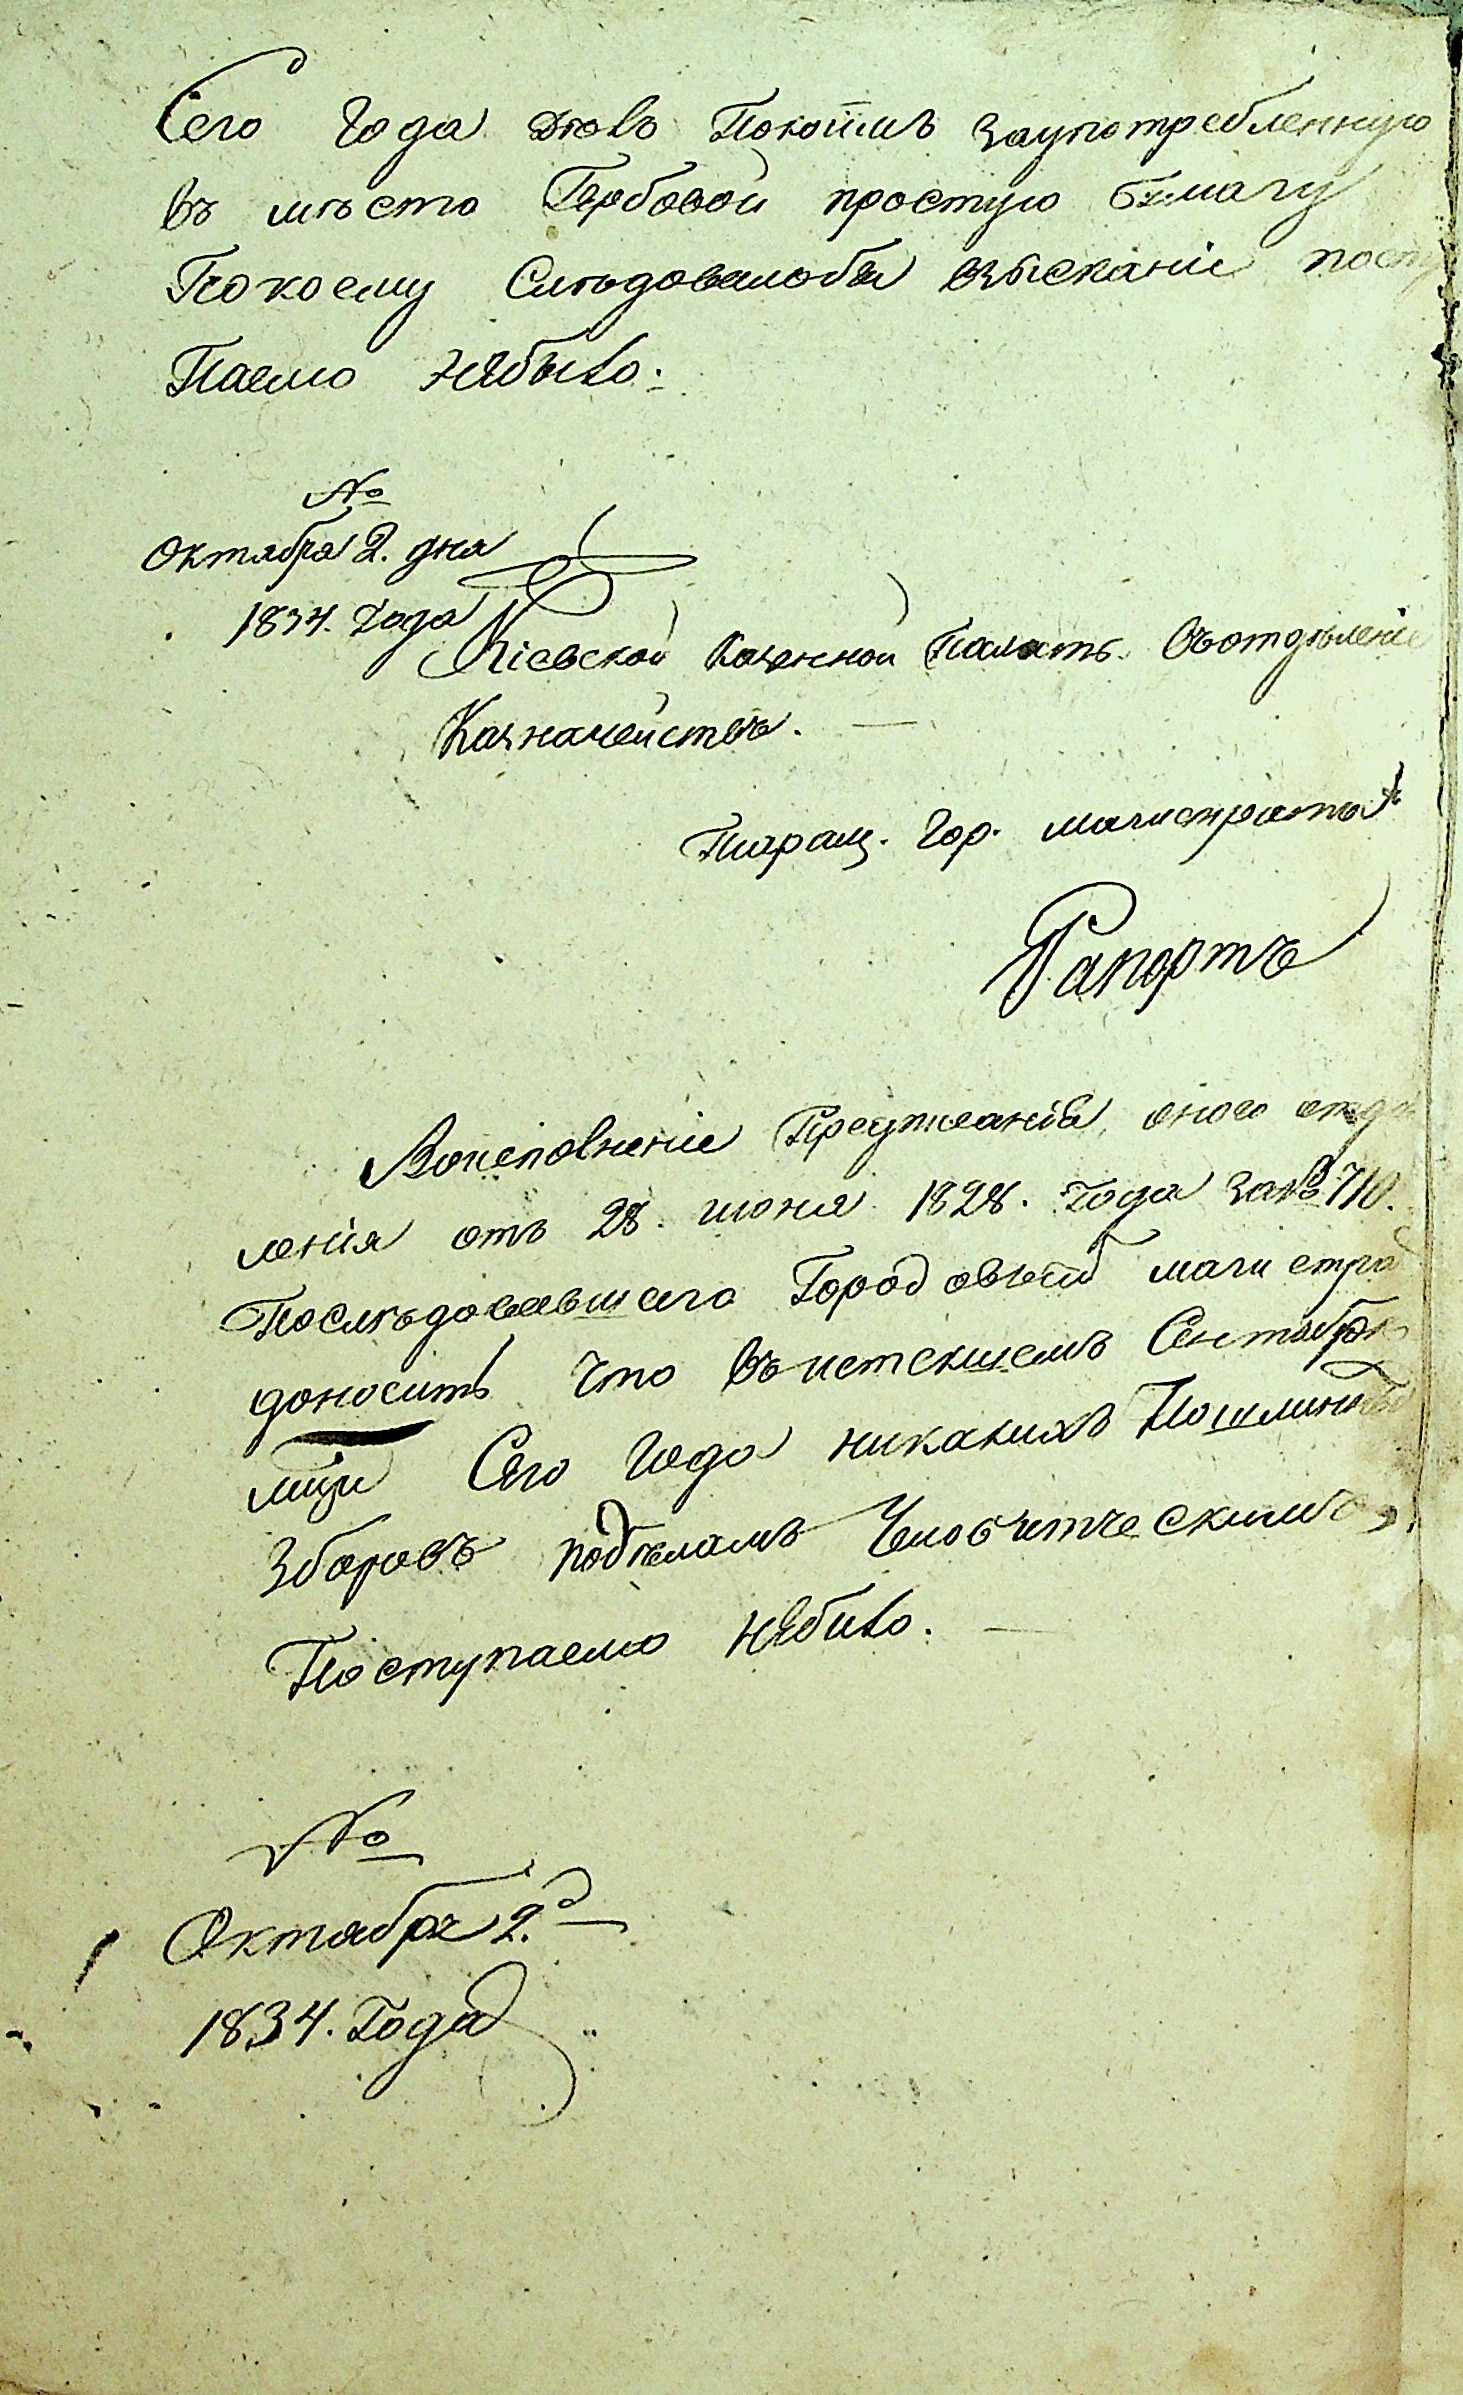 Сего Года дѣлъ Покоимъ заупотребленную
въ мѣсто Гербовой простую бумагу
Покоему Слѣдовалобы взысканіе посту
Паемо небыло.
№
Октября 2. дня
1834. Года
Кіевской Казенной Палатѣ. Въотдѣленіе
Казначействъ.
Таращ. Гор. магистрата
Рапортъ
Воисполненіе Предписанія оного отдѣ
ленія отъ 28. июня 1828. Года за№ 710.
Послѣдовавшаго Городовый магистрат
доноситъ что въистекшемъ Сентябрѣ
мцѣ Сего Года никакихъ Пошлинныхъ
Зборовъ подѣламъ Челобитческимъ
Поступаемо небило.
№
Октября 2. д
1834. Года